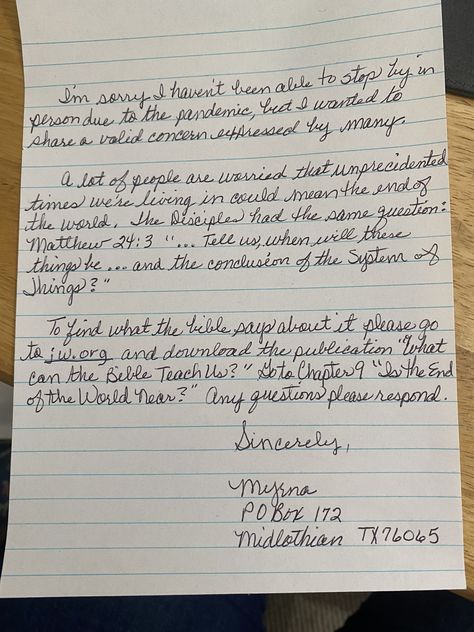 I'm sorry I haven't been able to stop by in
person due to the pandemic, but I wanted to
share a valid concern expressed by many.
A lot of people are worried that unprecidented
times we're living in could mean the end of
the world. The Disciples had the same question:
Matthew 24:3 "... Tell us, when will these
things be ... and the conclusion of the System of
Things?"
To find what the bible says about it please go
to jw.org and download the publication "What
can the Bible Teach Us?" Go to Chapter 9 "Is the End
of the World Near?" Any questions please respond.
Sincerely,
Myrna
PO Box 172
Midlothian TX 76065